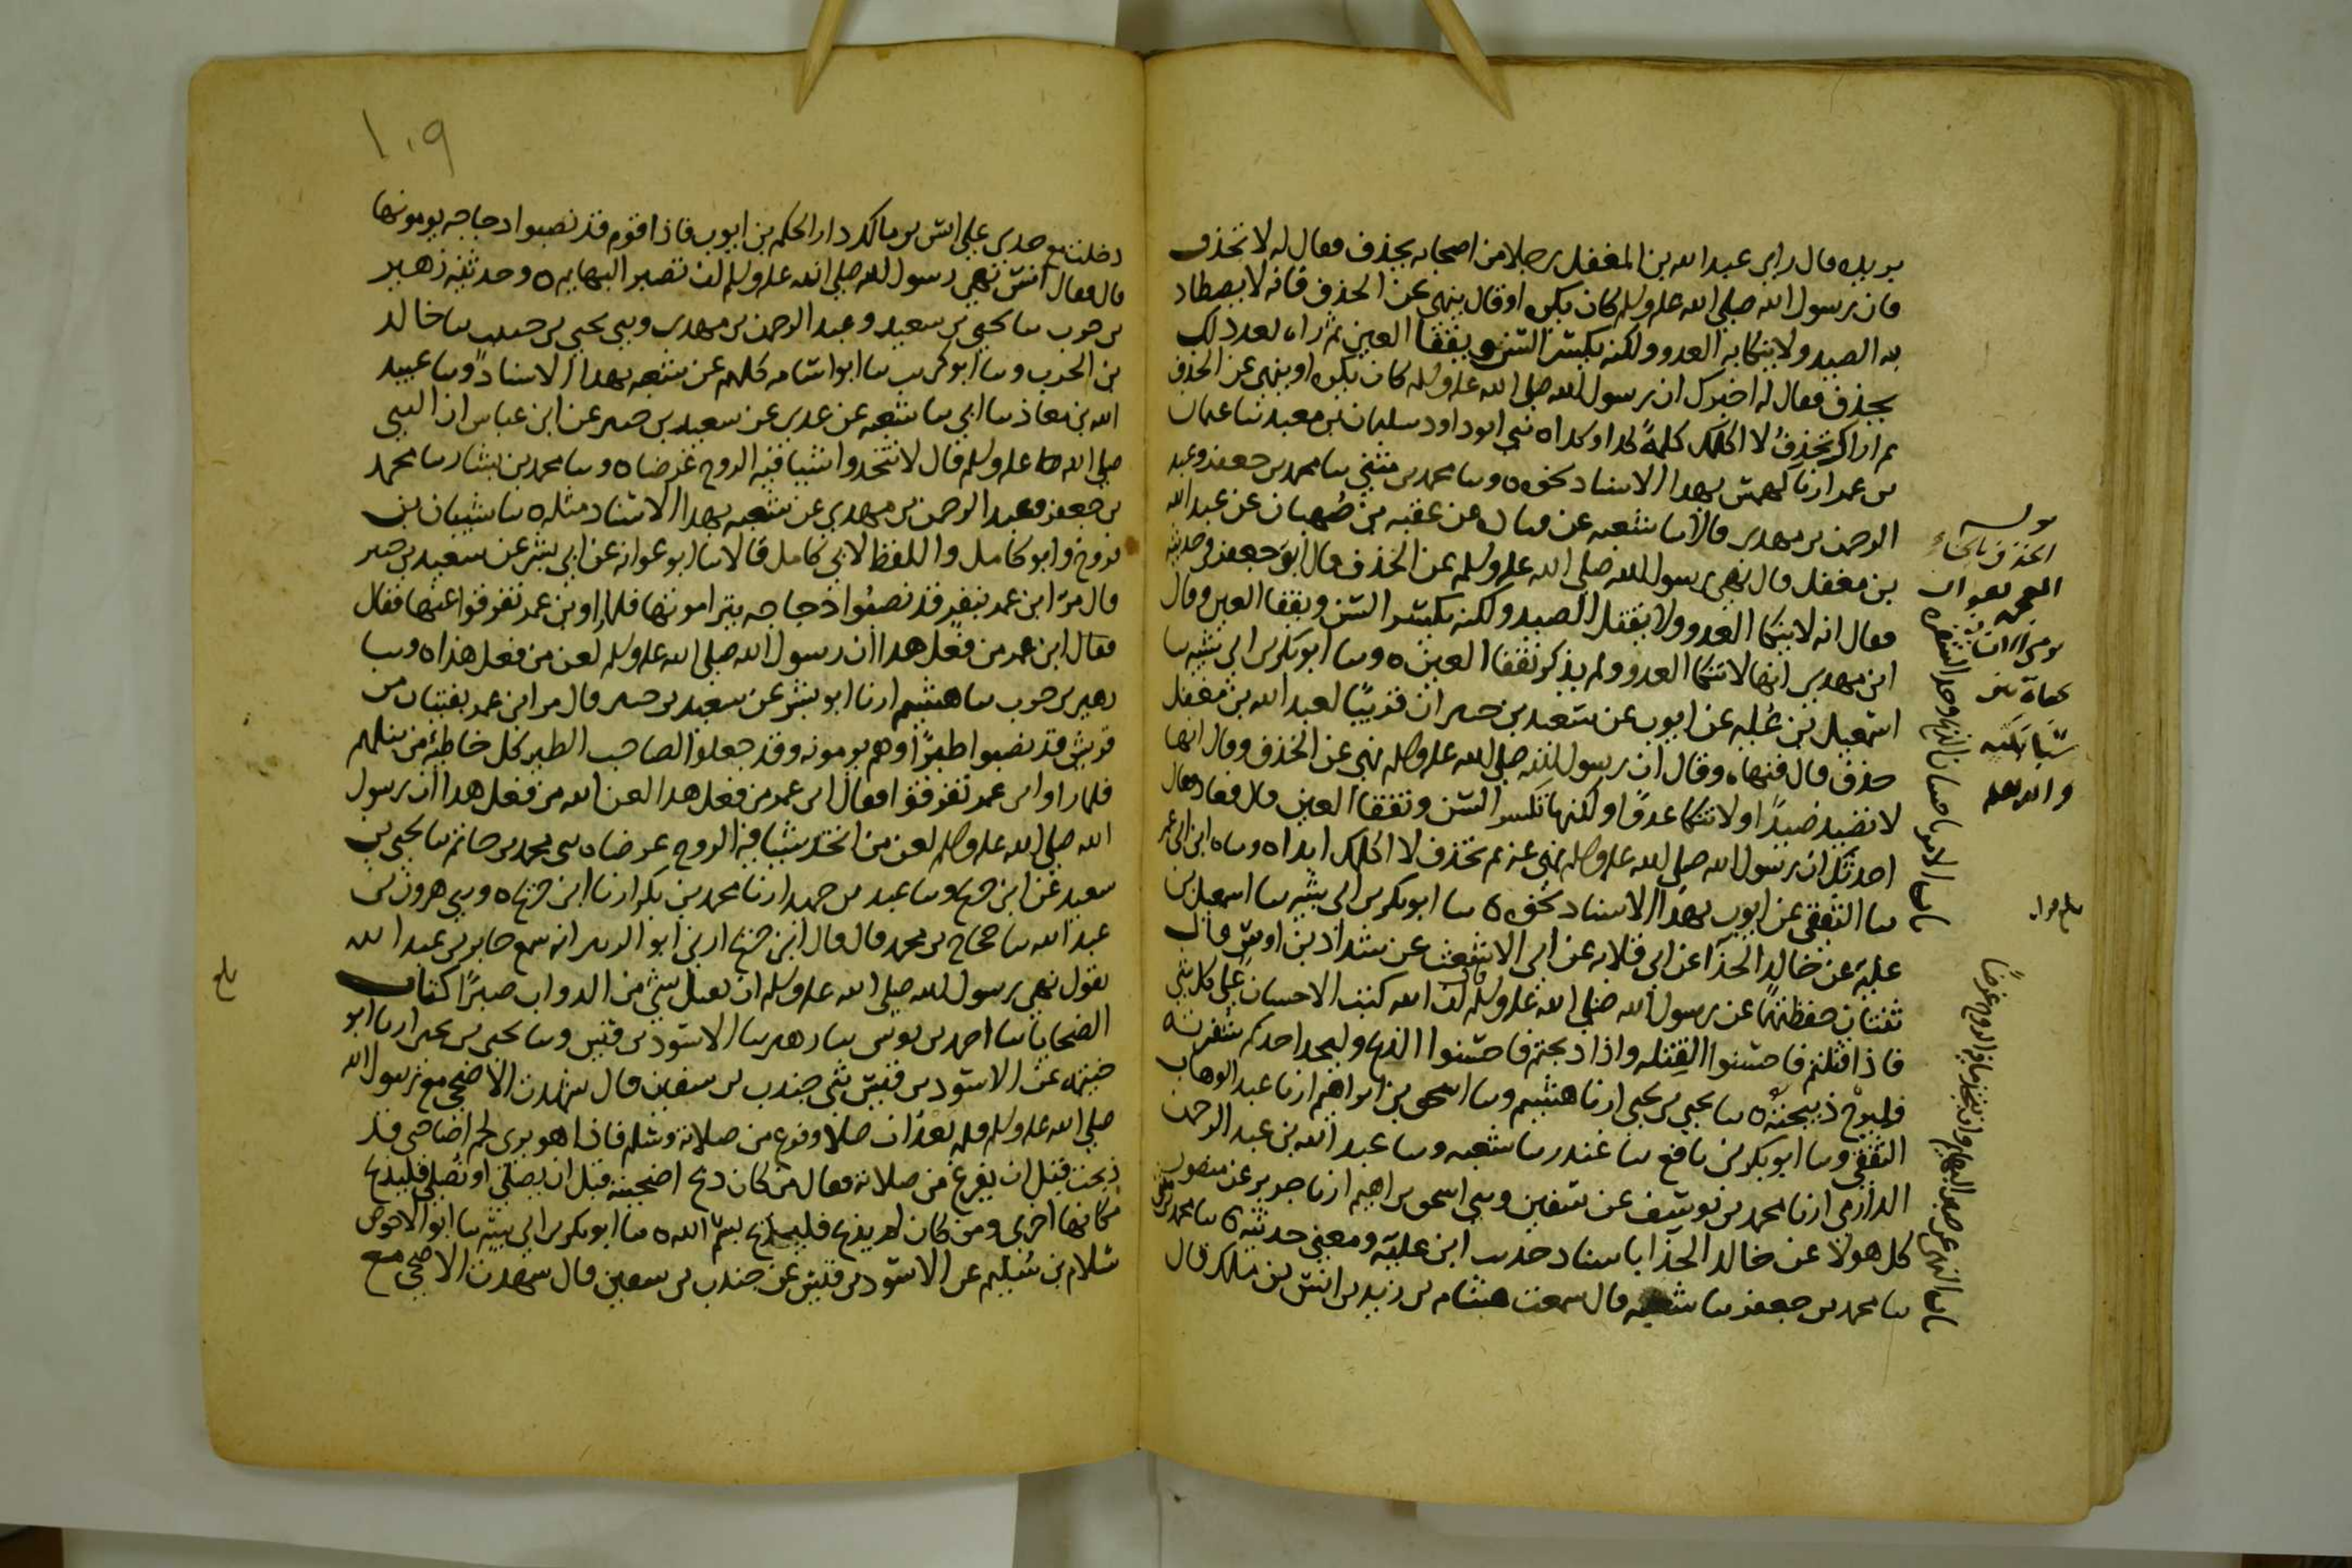 بريده قال راى عبد الله بن المغفل رجلا من اصحابه يخذف فقال له لا تخذف
فان رسول الله صلى الله عليه وسلم كان يكره او قال ينهى عن الخذف فانه لا يصطاد
به الصيد ولا ينكا به العدو ولكنه يكسر السن ويفقا العين ثم راه بعد ذلك
يخذف فقال له اخبرك ان رسول الله صلى الله عليه وسلم كان يكره او ينهى عن الخذف
ثم اراك تخذف لا اكلمك كلمةً كذا وكذا ه ثني ابو داود سليمان بن معبد ثنا عثمان
بن عمر ارنا كهمس بهذا الاسناد نحوه ه وثنا محمد بن مثنى ثنا محمد بن جعفر وعبد
الرحمن بن مهدي قالا ثنا شعبه عن قتاده عن عقبه بن صُهبان عن عبد الله
بن مغفل قال نهى رسول الله صلى الله عليه وسلم عن الخذف قال ابن جعفر في حديثه
فقال انه لا ينكا العدو ولا يقتل الصيد ولكنه يكسر السن ويفقا العين وقال
ابن مهدي انها لا تنكا العدو ولم يذكر تفقا العين ه وثنا ابو بكر بن ابي شيبه ثنا
اسمعيل بن عُليه عن ايوب عن سعيد بن جبير ان قريبًا لعبد الله بن مغفل
خذف قال فنهاه وقال ان رسول الله صلى الله عليه وسلم نهى عن الخذف وقال انها
لا تصيد صيدًا ولا تنكا عدوًا ولكنها تكسر السن وتفقا العين قال فعاد فقال
احدثك ان رسول الله صلى الله عليه وسلم نهى عنه ثم تخذف لا اكلمك ابدا ه وثناه ابن ابي عمر
ثنا الثقفي عن ايوب بهذا الاسناد نحوه ه ثنا ابو بكر بن ابي شيبه ثنا اسمعيل بن
عليه عن خالد الحذّا عن ابي قلابه عن ابي الاشعث عن شداد بن اوس قال
ثنتان حفظتهما عن رسول الله صلى الله عليه وسلم قال ان الله كتب الاحسان على كل شي
فاذا قتلتم فاحسنوا القِتله واذا ذبحتم فاحسنوا الذبح وليحد احدكم شفرته
فليرح ذبيحته ه ثنا يحيى بن يحيى ارنا هشيم وثنا اسحق بن ابراهيم ارنا عبد الوهاب
الثقفي وثنا ابو بكر بن نافع ثنا غندر ثنا شعبه وثنا عبد الله بن عبد الرحمن
الدارمي ارنا محمد بن يوسف عن سفين وثني اسحق بن ابراهيم ارنا جرير عن منصور
كل هولا عن خالد الحذا باسناد حديث ابن علية ومعنى حديثه ه ثنا محمد بن مثنى
ثنا محمد بن جعفر ثنا شعبه قال سمعت هشام بن زيد بن انس بن ملك قال
الخذف بالخاء
المعجمه هو ان
يرمى الانسان
بحصاة بين
سبابتيه
والله اعلم
باب الامر باحسان الذبح وحد الشفره
باب النهي عن صبر البهايم وان يتخذ ما فيه الروح غرضًا
١٠٩
دخلت مع جدي على انس بن مالك دار الحكم بن ايوب فاذا قوم قد نصبوا دجاجه يرمونها
قال فقال انس نهى رسول الله صلى الله عليه وسلم ان تصبر البهايم ه وحدثنيه زهير
بن حرب ثنا يحيى بن سعيد وعبد الرحمن بن مهدي وثني يحيى بن حبيب ثنا خالد
بن الحرث وثنا ابو كريب ثنا ابو اسامه كلهم عن شعبه بهذا الاسناد وثنا عبيد
الله بن معاذ ثنا ابي ثنا شعبه عن عدي عن سعيد بن جبير عن ابن عباس ان النبي
صلى الله عليه وسلم قال لا تتخذوا شيا فيه الروح غرضا ه وثنا محمد بن بشار ثنا محمد
بن جعفر وعبد الرحمن بن مهدي عن شعبه بهذا الاسناد مثله ه ثنا شيبان بن
فروخ وابو كامل واللفظ لابي كامل قالا ثنا ابو عوانه عن ابي بشر عن سعيد بن جبير
قال مرّ ابن عمر بنفر قد نصبُوا دجاجه يترامونها فلما راو ابن عمر تفرقوا عنها فقال
فقال ابن عمر من فعل هذا ان رسول الله صلى الله عليه وسلم لعن من فعل هذا ه وثني
زهير بن حرب ثنا هشيم ارنا ابو بشر عن سعيد بن جبير قال مر ابن عمر بفتيان من
قريش قد نصبوا طيرًا وهم يرمونه وقد جعلوا لصاحب الطير كل خاطئه من نبلهم
فلما راوا ابن عمر تفرقوا فقال ابن عمر من فعل هذا لعن الله من فعل هذا ان رسول
الله صلى الله عليه وسلم لعن من اتخذ شيا فيه الروح غرضا ه ثني محمد بن حاتم ثنا يحيى بن
سعيد عن ابن جريج وثنا عبد بن حميد ارنا محمد بن بكر ارنا ابن جريج ه وثني هرون بن
عبد الله ثنا حجاج بن محمد قال قال ابن جريج اخبرني ابو الزبير انه سمع جابر بن عبد الله
يقول نهى رسول الله صلى الله عليه وسلم ان يقتل شي من الدواب صبرًا كتاب
الضحايا ثنا احمد بن يونس ثنا زهير ثنا الاسود بن قيس وثنا يحيى بن يحيى ارنا ابو
خيثمه عن الاسود بن قيس ثني جندب بن سفين قال شهدت الاضحى مع رسول الله
صلى الله عليه وسلم فلم يعد ان صلا وفرغ من صلاته وسلم فاذا هو يرى لحم اضاحى قد
ذبحت قبل ان يفرغ من صلاته فقال من كان ذبح اضحيته قبل ان يصلي او نصلي فليذبح
مكانها اخرى ومن كان لم يذبح فليذبح بسم الله ه ثنا ابو بكر بن ابي شيبه ثنا ابو الاحوص
سلام بن سُليم عن الاسود بن قيس عن جندب بن سفين قال شهدت الاضحى مع
بلغ